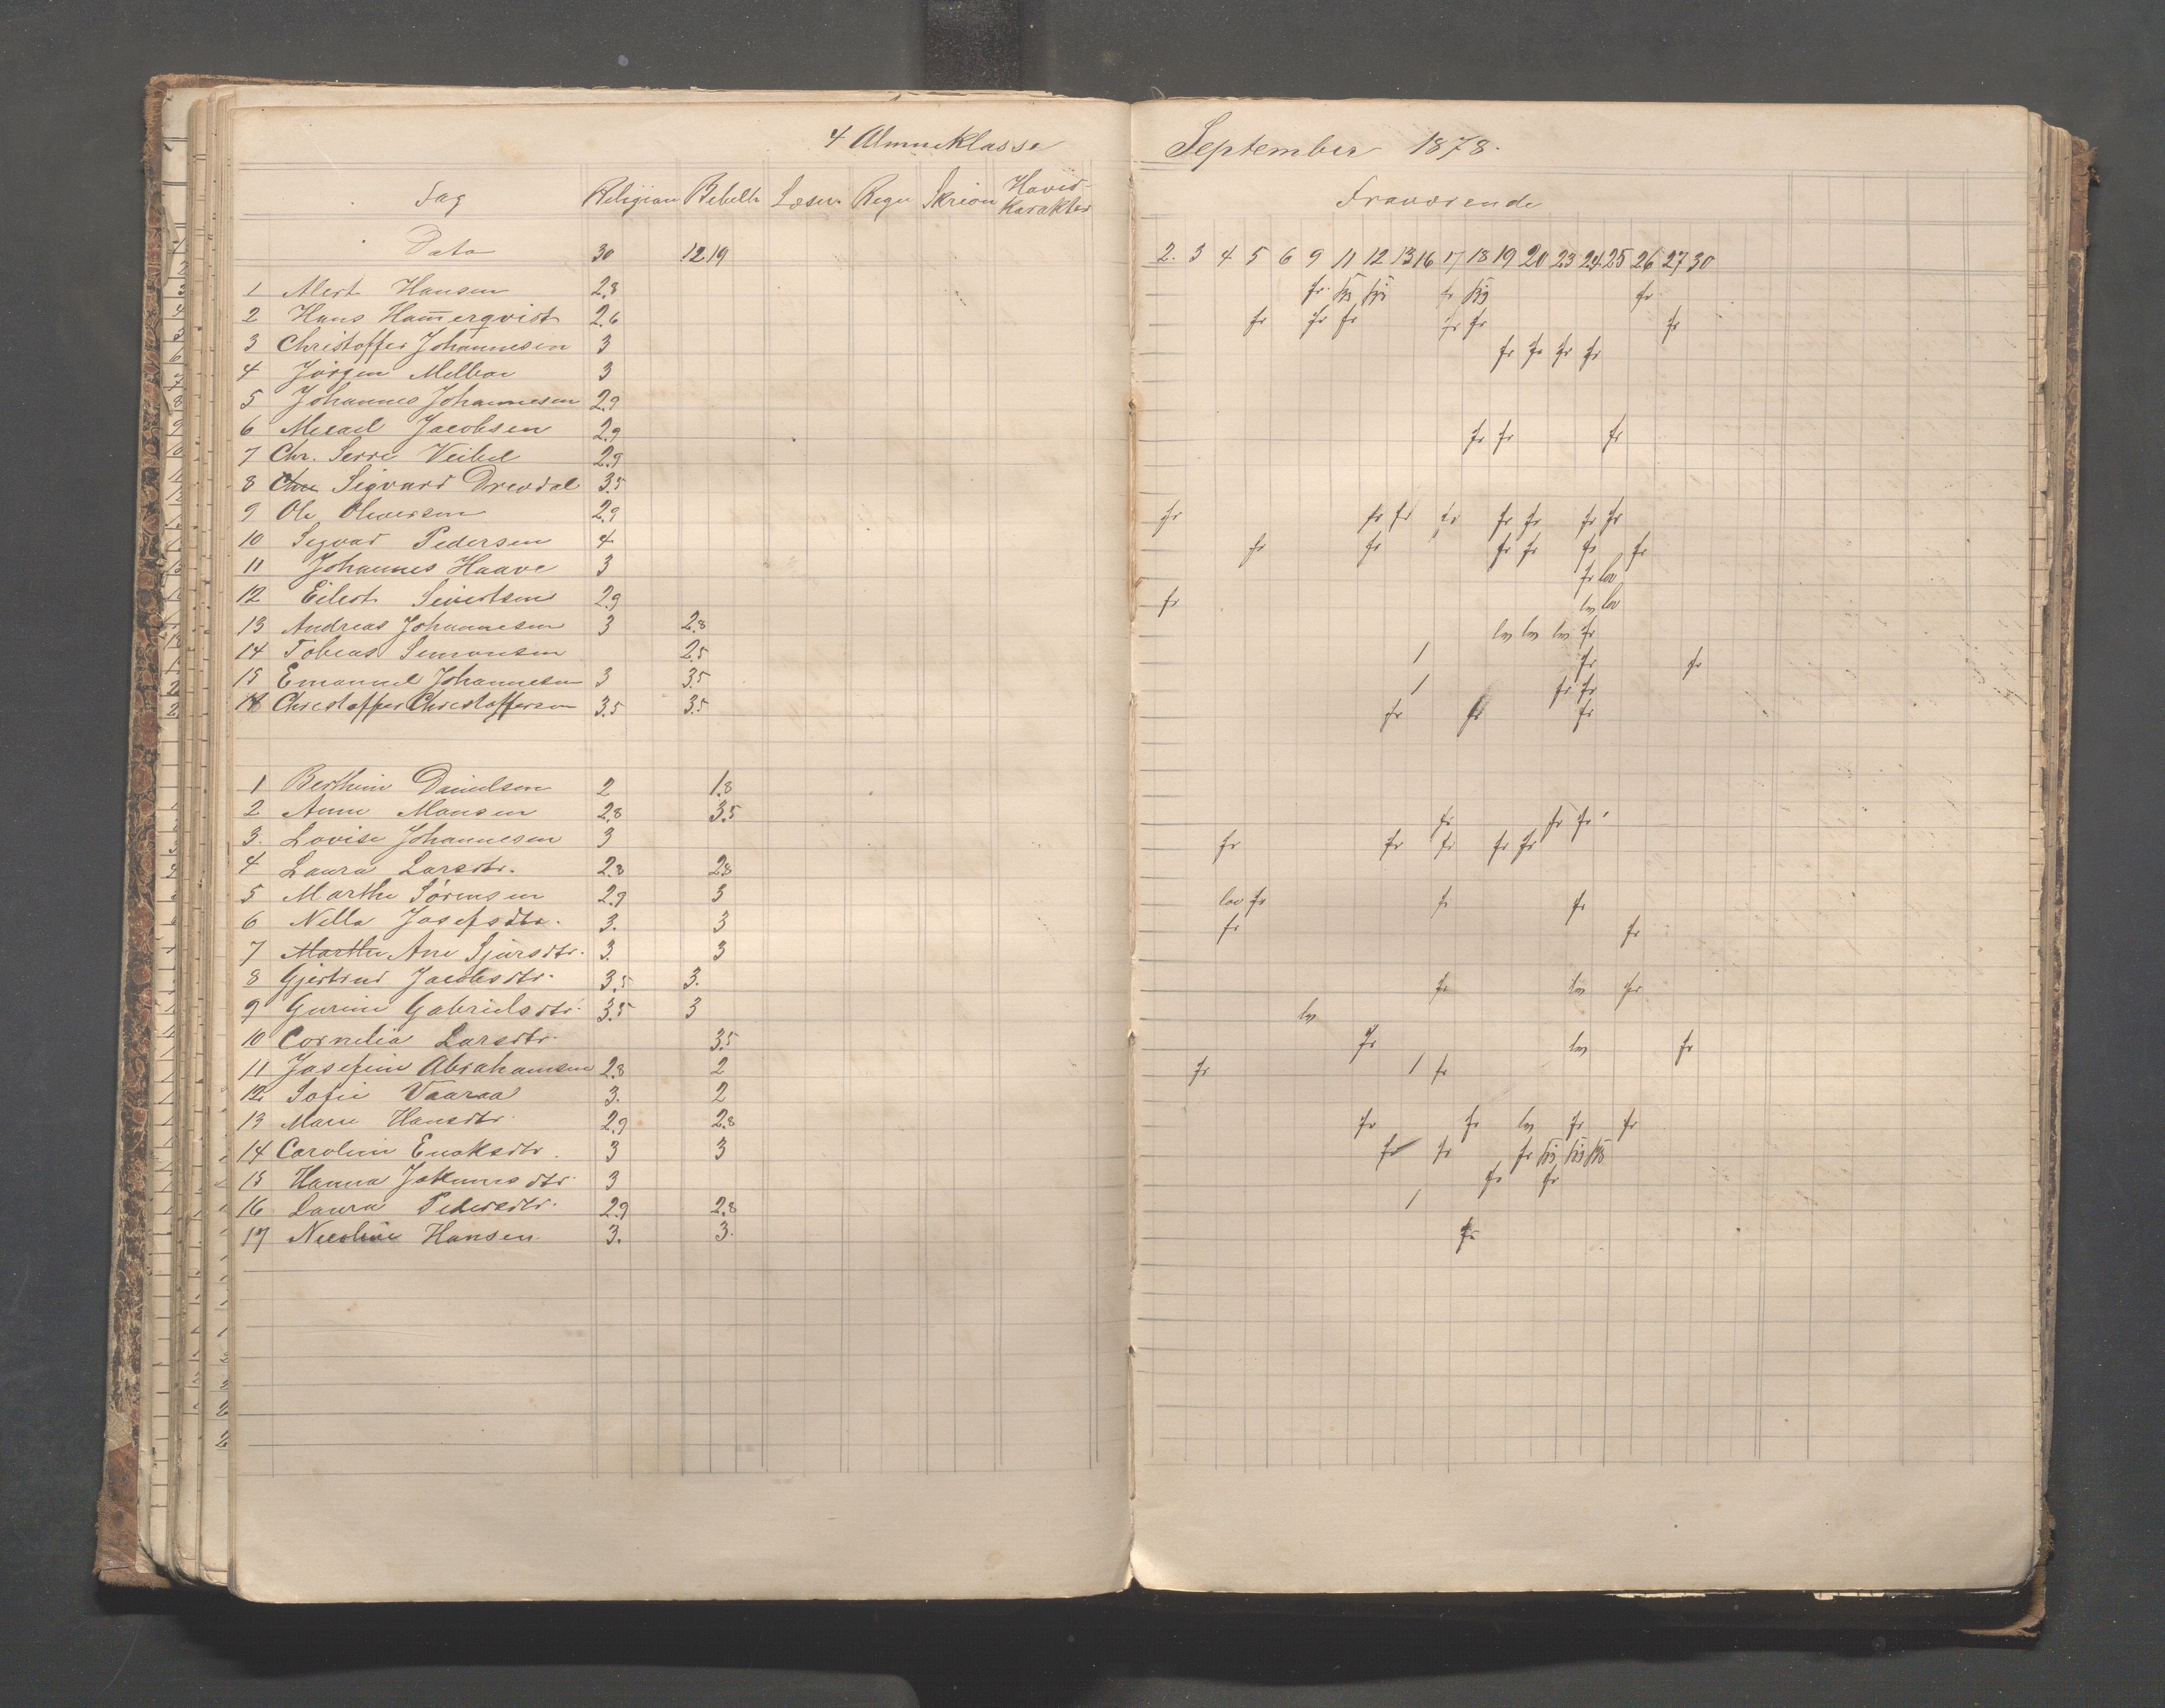 4 Almueklasse
Fag Religion Bibelh Læsn Regn Skrivn Hoved-Karakter
Dato 30 12 19
1 Alert Hansen 2.8
2 Hans Ham̅erqvist 2.6
3 Christoffer Johannesen 3
4 Jørgen Melbar 3
5 Johannes Johannesen 2.9
6 Micael Jacobsen 2.9
7 Chr. Serre Veibel 2.9
8 Sigvard Drevdal 3.5
9 Ole Oliversen 2.9
10 Segvar Pedersen 4
11 Johannes Haave 3
12 Eilert Sivertsen 2.9
13 Andreas Johannesen 3 2.8
14 Tobias Simonsen 2.5
15 Emanuel Johannesen 3 3.5
16 Christoffer Christoffersen 3.5 3.5
1 Berthine Danielsen 2 1.8
2 Anne Monsen 2.8 3.5
3. Lovise Johannesen 3
4 Laura Larsdtr. 2.8 2.8
5 Marthe Sørensen 2.9 3
6 Nella Josefsdtr. 3. 3
7 Marthe Ane Sjursdtr. 3. 3
8 Gjertrud Jacobsdtr. 3.5 3.
9 Gurine Gabrielsdtr. 3.5 3
10 Cornelia Larsdtr. 3.5
11 Josefine Abrahamsen 2.8 2
12 Sofie Vaaraa 3. 2
13 Marie Hansdtr. 2.9 2.8
14 Caroline Enoksdtr. 3 3
15 Hanna Johannesdtr. 3
16 Laura Pedersdtr. 2.9 2.8
17 Nicoline Hansen 3. 3.
September 1878.
Fraværende
2. 3 4 5 6 9 11 12 13 16 17 18 19 20 23 24 25 26 27 30
fr. syg syg fr syg fr
fr fr fr fr fr fr
fr fr fr fr
fr fr fr
fr fr fr fr fr fr fr fr
fr fr fr fr fr fr
fr lov
fr lov
fr
1 fr fr
1 fr fr
fr fr fr
fr fr fr
fr fr fr fr fr
lov fr fr fr
fr fr
fr fr
fr fr
fr 1 fr
fr fr fr fr
fr fr fr syg syg syg
fr fr
1
fr